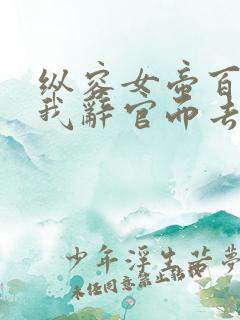 纵容女帝百
我辞官而去
少年浮生若夢
未经同意禁止转载